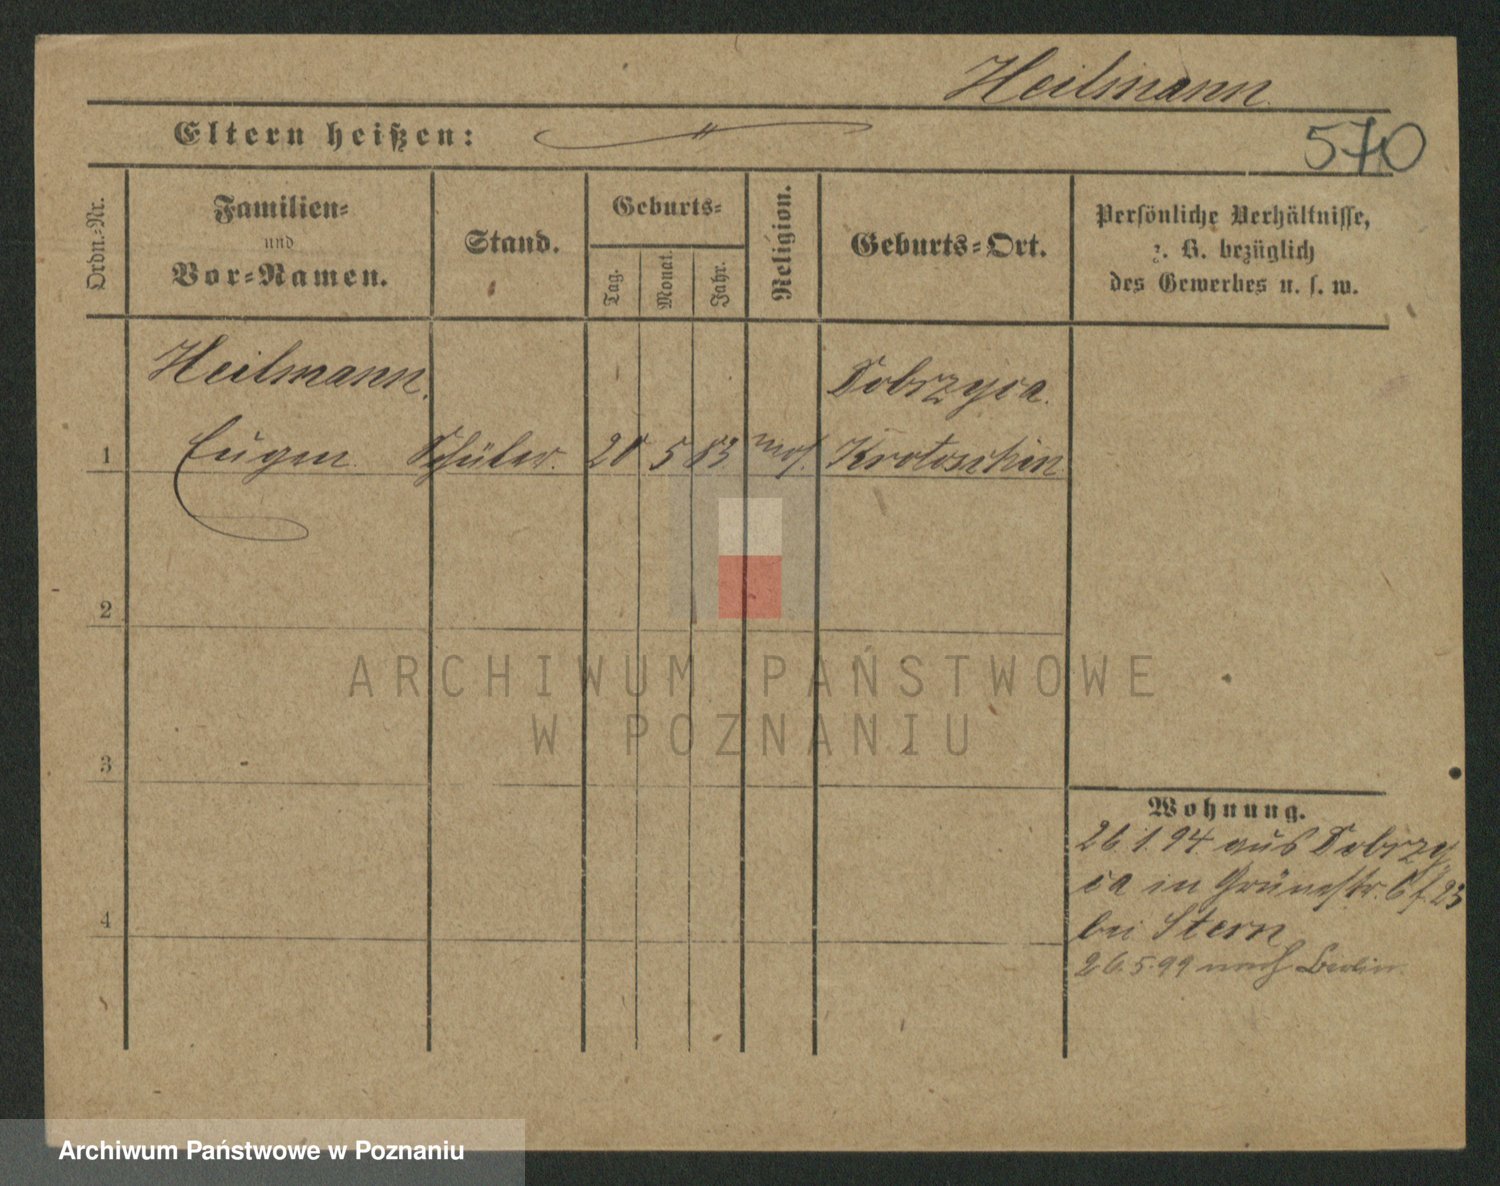 Heilmann
570
Eltern heißen:
Ordn.-Nr.
Familien-
und
Vor-Namen.
Stand.
Geburts-
Tag.
Monat.
Jahr.
Religion.
Geburts-Ort.
Persönliche Verhältnisse,
z. B. bezüglich
des Gewerbes u. s. w.
Heilmann,
Dobrzyca.
1 Eugen Schüler. 5 83 mos. Krotoschin
2
3
4
Wohnung.
26.1.94. aus Dobrzy
ca in Grünestr. 6
bei Stern
26.5.99 nach Berlin
ARCHIWUM PAŃSTWOWE
W POZNANIU
Archiwum Państwowe w Poznaniu